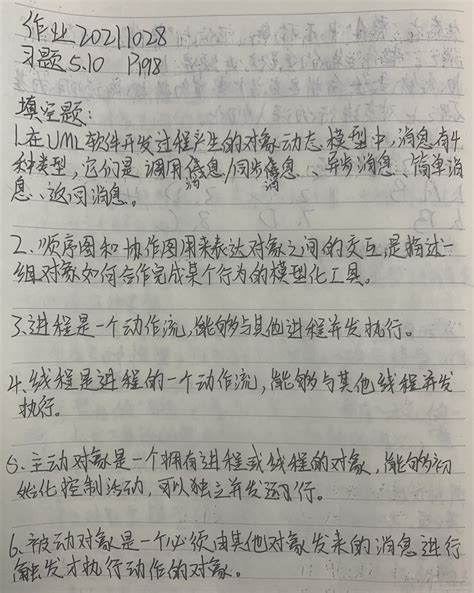 作业 20211028
习题5.10 P198
填空题:
1.在UML软件开发过程产生的对象动态模型中,消息有4
种类型,它们是调用消息/同步消息、异步消息、简单消
息、返回消息。
2.顺序图和协作图用来表达对象之间的交互,是描述一
组对象如何合作完成某个行为的模型化工具。
3.进程是一个动作流,能够与其他进程并发执行。
4.线程是进程的一个动作流,能够与其他线程并发
执行。
5.主动对象是一个拥有进程或线程的对象,能够初
始化控制活动,可以独立并发运行。
6.被动对象是一个必须由其他对象发来的消息进行
触发才执行动作的对象。